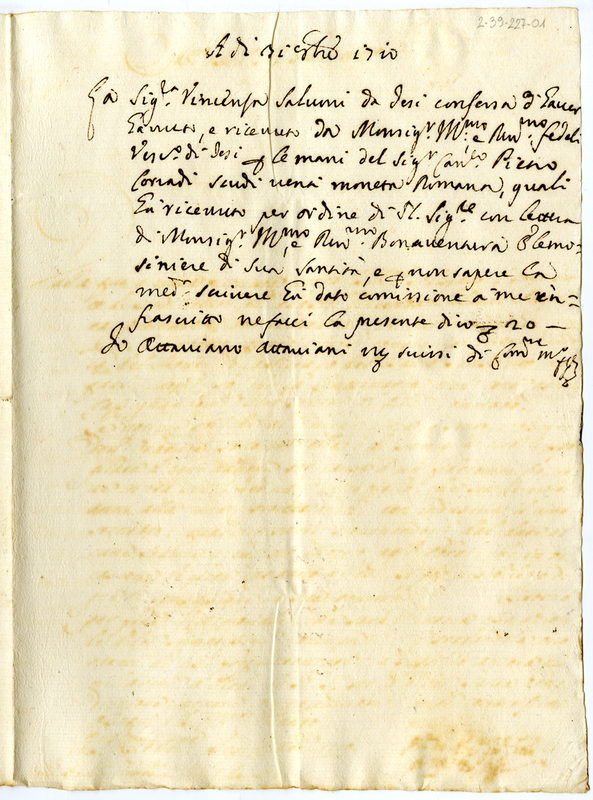 2-39-227-01
A dì 31 Xbre 1710
La Sig.ra Vincenza Salvoni da Jesi confessa d'haver
havuto, e ricevuto da Monsig.r Ill.mo e Rev.mo fedeli
Vesc.o di Jesi p le mani del Sig.r Can.co Pietro
Corradi scudi venti moneta Romana, quali
ha ricevuto per ordine di S. Sig.ria con lettera
di Monsig.r Ill.mo, e Rev.mo Bonaventura Elemo=
siniere di Sua Santità, e p non sapere la
med.a scrivere ha dato comissione a me in=
frascritto ne facci la presente dico 20 —
Io Ottaviano Ottaviani scrissi di Com.ne